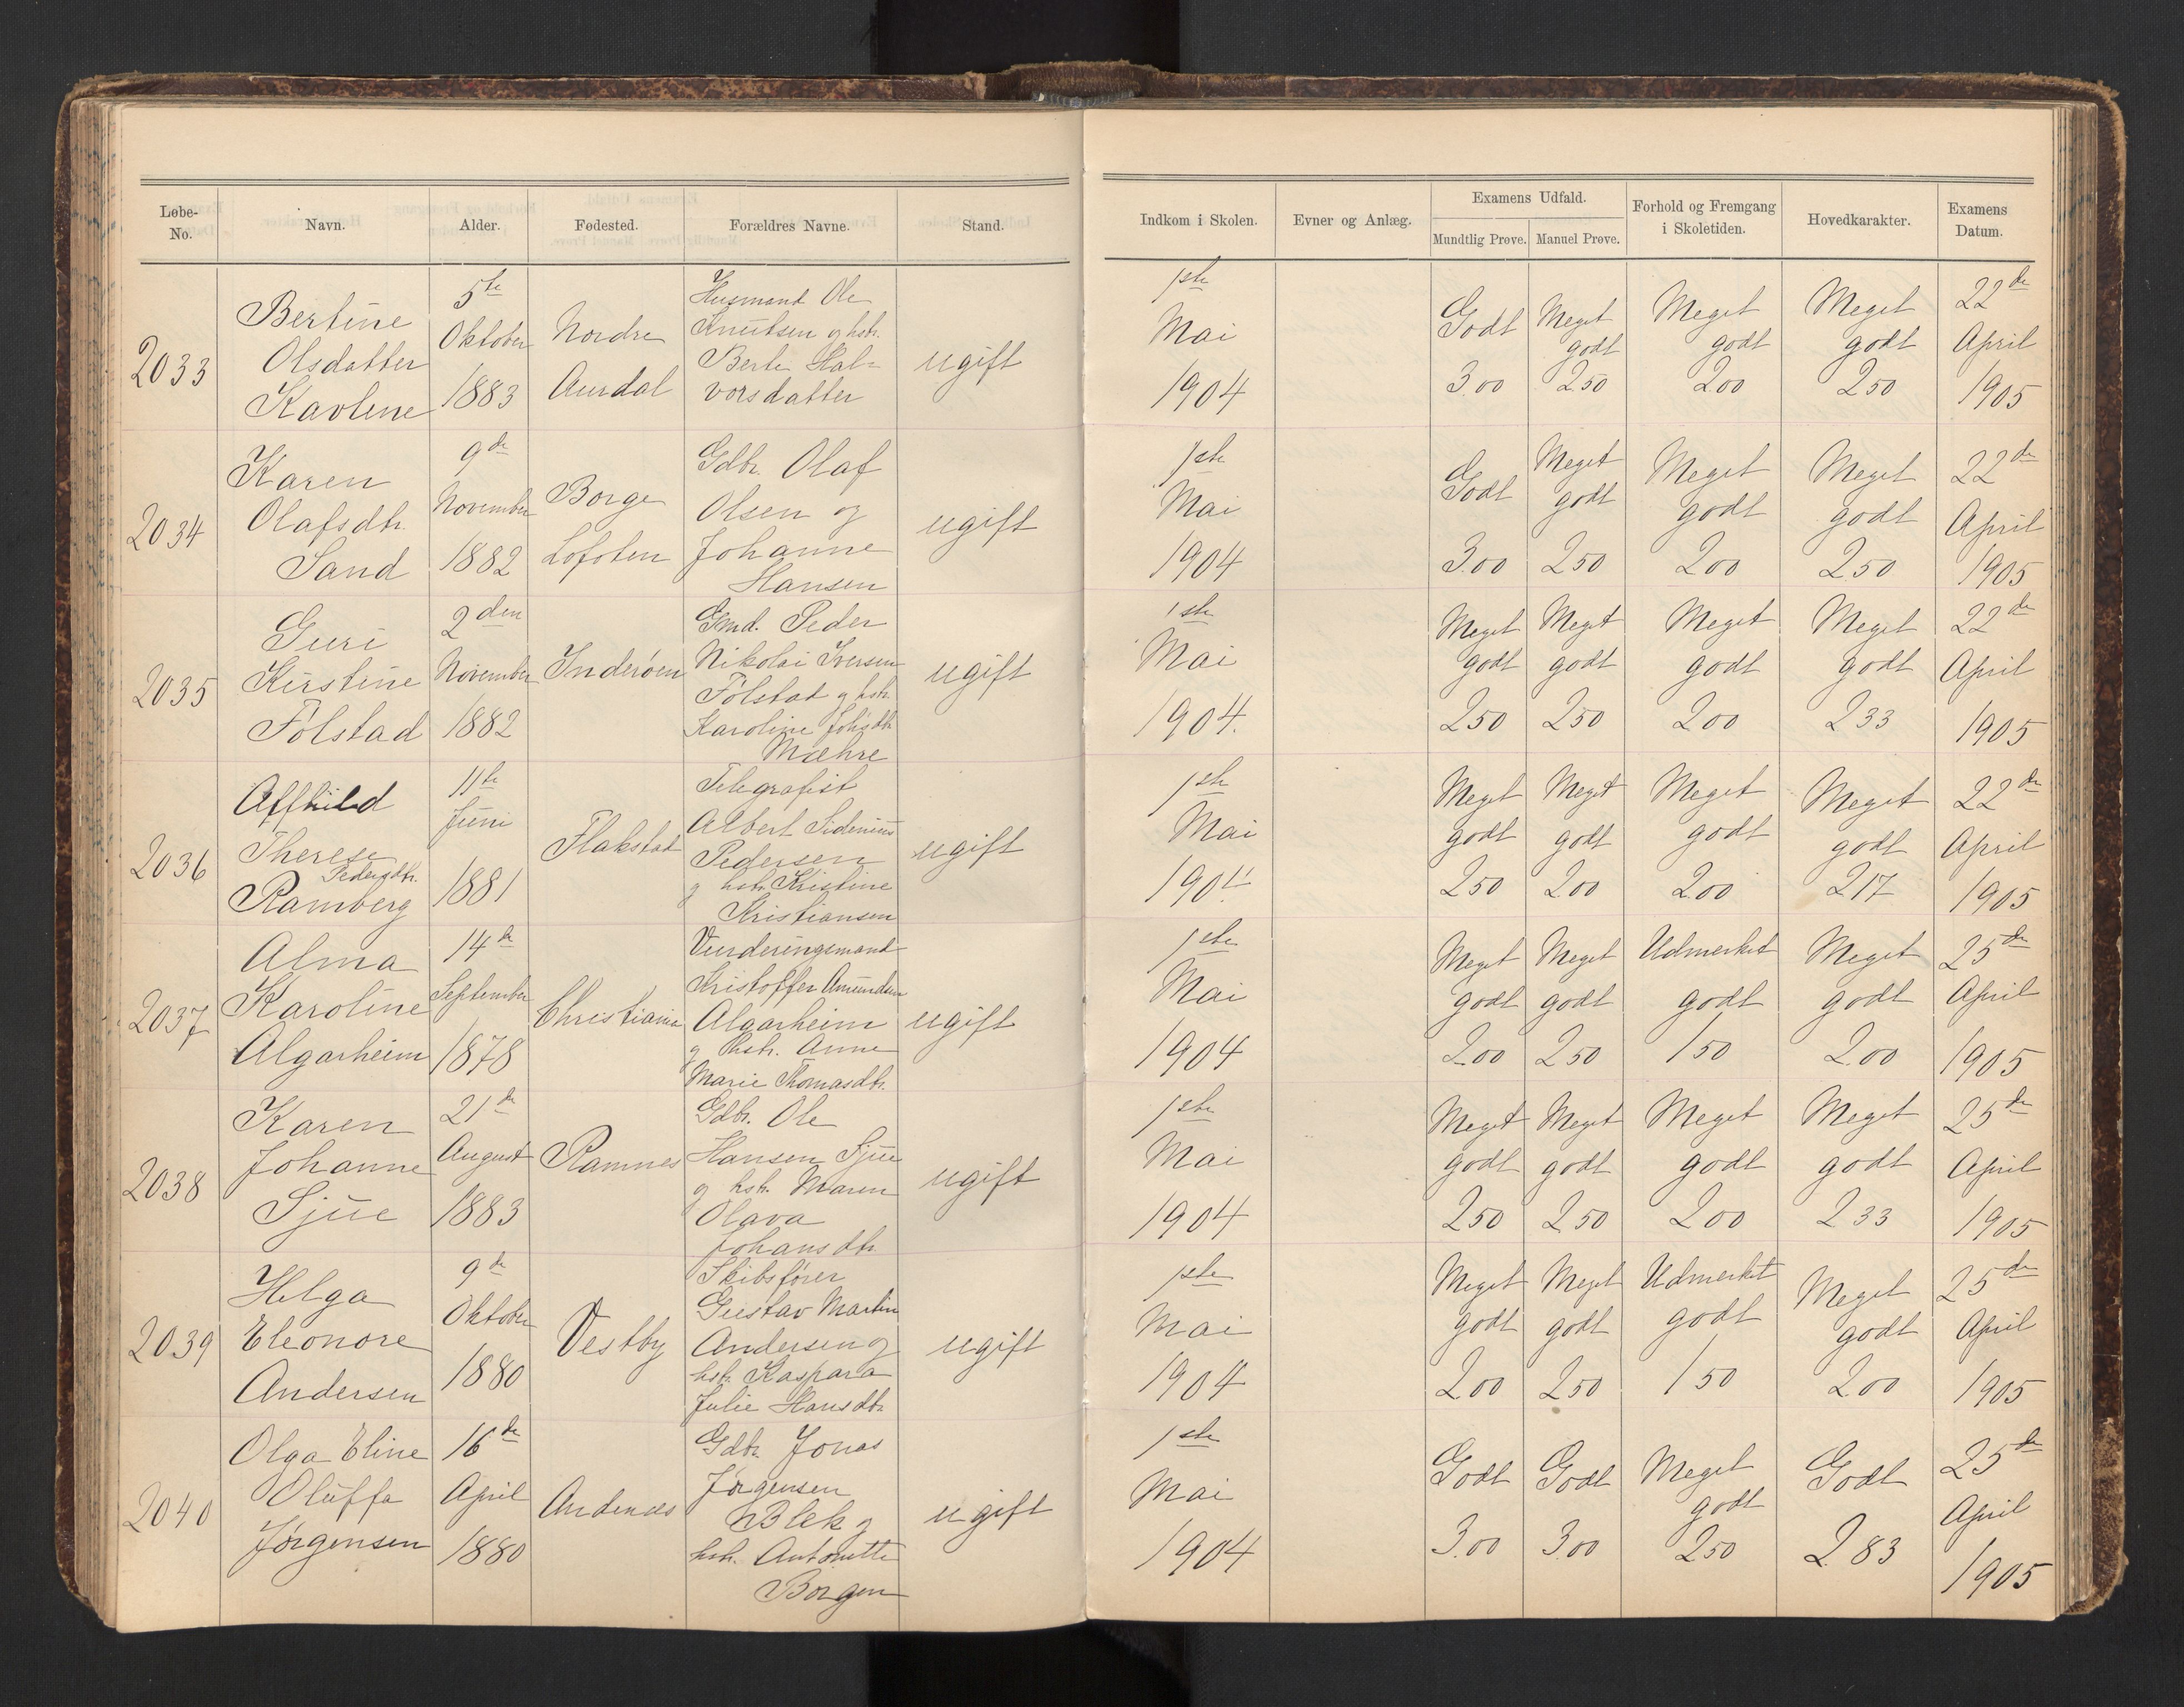 Løbe-No. Navn. Alder. Fødested. Forældres Navne. Stand. Indkom i Skolen. Evner og Anlæg. Examens Udfald. Mundtlig Prøve. Manuel Prøve. Forhold og Fremgang i Skoletiden. Hovedkarakter. Examens Datum.
2033
Bertine
Olsdatter
Karline
5te
Oktober
1883
Nordre
Aurdal
Husmand Ole
Knutsen og hstr.
Berte Hal-
vorsdatter
ugift
1ste
Mai
1904
Godt
3.00
Meget
godt
2.50
Meget
godt
2.00
Meget
godt
2.50
22de
April
1905
2034
Karen
Olafsdtr.
Sand
9de
November
1882
Borge
Lofoten
Gdbr. Olaf
Olsen og
Johanne
Hansen
ugift
1ste
Mai
1904
Godt
3.00
Meget
godt
2.50
Meget
godt
2.00
Meget
godt
2.50
22de
April
1905
2035
Guri
Kirstine
Følstad
2den
November
1882
Inderøen
Gmd. Peder
Nikolai Iversen
Følstad og hstr.
Karoline Johsdtr.
Mæhre
ugift
1ste
Mai
1904.
Meget
godt
2.50
Meget
godt
2.50
Meget
godt
2.00
Meget
godt
2.33
22de
April
1905
2036
Affhild
Therese
Pedersdtr.
Ramberg
11te
Juni
1881
Flakstad
Telegrafist
Albert Sidenius
Pedersen
og hstr. Kristine
Kristiansen
ugift
1ste
Mai
1904
Meget
godt
2.50
Meget
godt
2.00
Meget
godt
2.00
Meget
godt
2.17
22de
April
1905
2037
Alma
Karoline
Algarheim
14de
September
1878
Christiania
Vurderingsmand
Kristoffer Amundsen
Algarheim
og hstr. Anne
Marie Thomasdtr.
ugift
1ste
Mai
1904
Meget
godt
2.00
Meget
godt
2.50
Udmerket
godt
1.50
Meget
godt
2.00
25de
April
1905
2038
Karen
Johanne
Sjue
21de
August
1883
Ramnes
Gdbr. Ole
Hansen Sjue
og hstr. Maren
Olava
Johansdtr.
ugift
1ste
Mai
1904
Meget
godt
2.50
Meget
godt
2.50
Meget
godt
2.00
Meget
godt
2.33
25de
April
1905
2039
Helga
Eleonore
Andersen
9de
Oktober
1880
Vestby
Skibsfører
Gustav Martin
Andersen og
hstr. Kaspara
Julie Hansdtr.
ugift
1ste
Mai
1904
Meget
godt
2.00
Meget
godt
2.50
Udmerket
godt
1.50
Meget
godt
2.00
25de
April
1905
2040
Olga Eline
Oluffa
Jørgensen
16de
April
1880
Andenæs
Gdbr. Jonas
Jørgensen
Blek og
hstr. Antonette
Borgen
ugift
1ste
Mai
1904
Godt
3.00
Godt
3.00
Meget
godt
2.50
Godt
2.83
25de
April
1905